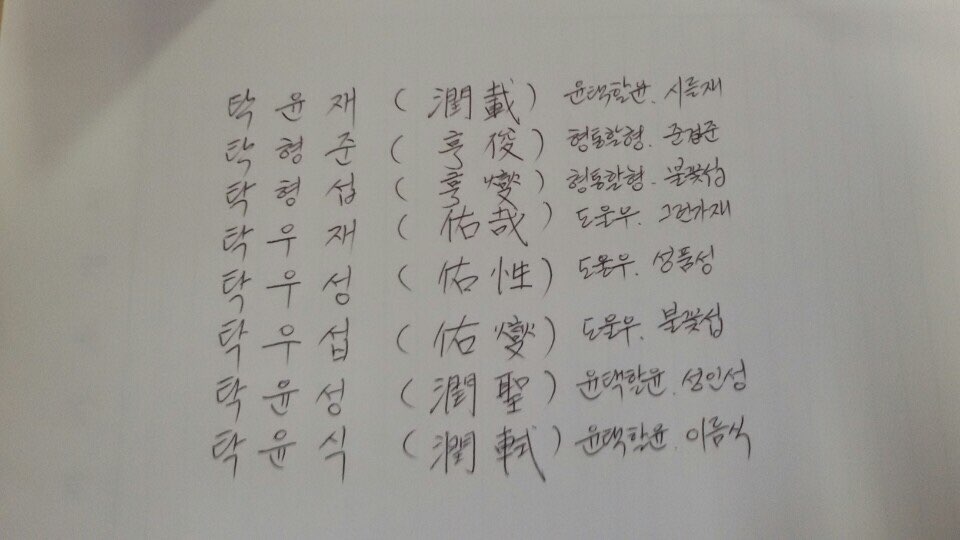 탁윤재 (潤載) 윤택할윤. 시를재
탁형준 (亨俊) 형통할형. 준걸준
탁형섭 (亨燮) 형통할형. 불꽃섭
탁우재 (佑哉) 도울우. 그런가재
탁우성 (佑性) 도울우. 성품성
탁우섭 (佑燮) 도울우. 불꽃섭
탁윤성 (潤聖) 윤택할윤. 성인성
탁윤식 (潤軾) 윤택할윤. 이름식